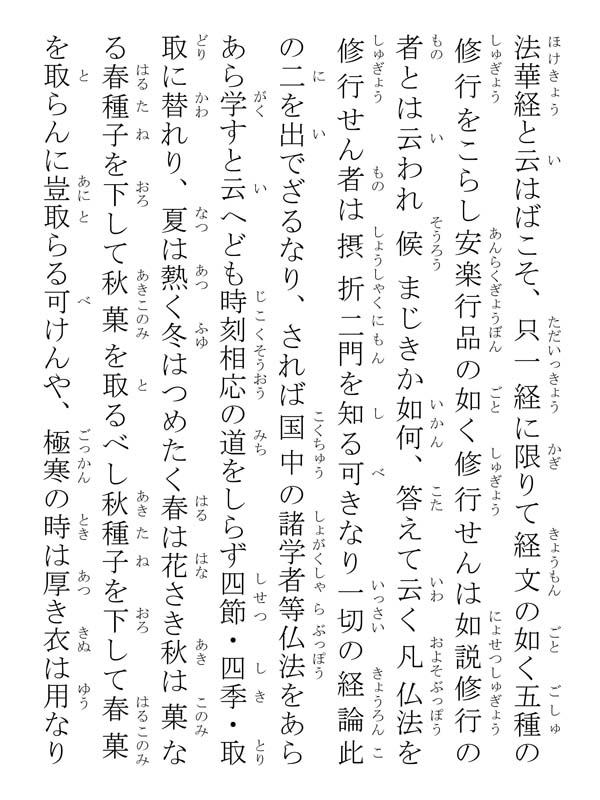 法華経と云はばこそ、只一経に限りて経文の如く五種の
修行をこらし安楽行品の如く修行せんは如説修行の
者とは云われ候まじきか如何、答えて云く凡仏法を
修行せん者は摂折二門を知る可きなり一切の経論此
の二を出でざるなり、されば国中の諸学者等仏法をあら
あら学すと云へども時刻相応の道をしらず四節・四季・取
取に替れり、夏は熱く冬はつめたく春は花さき秋は菓な
る春種子を下して秋菓を取るべし秋種子を下して春菓
を取らんに豈取らる可けんや、極寒の時は厚き衣は用なり